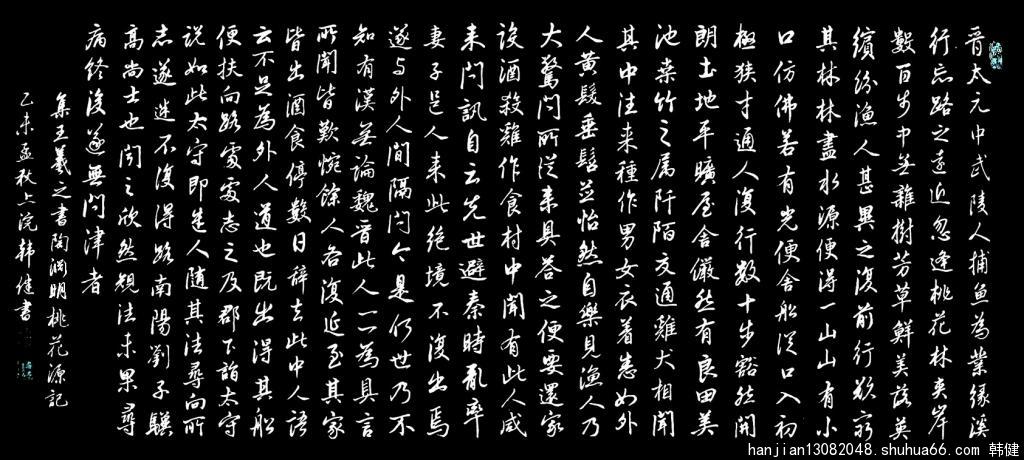 晋太元中武陵人捕鱼為業缘溪
行忘路之遠近忽逢桃花林夹岸
數百步中无雜樹芳草鮮美落英
缤纷漁人甚異之復前行欲穷
其林林盡水源便得一山山有小
口仿佛若有光便舍船從口入初
極狭才通人復行数十步豁然開
朗土地平曠屋舍儼然有良田美
池桑竹之属阡陌交通雞犬相聞
其中往来種作男女衣着悉如外
人黄髮垂髫并怡然自樂見漁人乃
大驚问所從来具答之便要還家
设酒殺雞作食村中聞有此人咸
来问訊自云先世避秦時亂率
妻子邑人来此绝境不復出焉
遂与外人間隔问今是何世乃不
知有漢无論魏晋此人一一為具言
所聞皆歎惋餘人各復延至其家
皆出酒食停數日辞去此中人語
云不足為外人道也既出得其船
便扶向路處處志之及郡下詣太守
说如此太守即遣人随其往尋向所
志遂迷不復得路南陽劉子驥
高尚士也闻之欣然規往未果尋
病终後遂無问津者
集王羲之書陶渊明桃花源记
乙未孟秋上浣韩健書
hanjian13082048.shuhua66.com 韩健